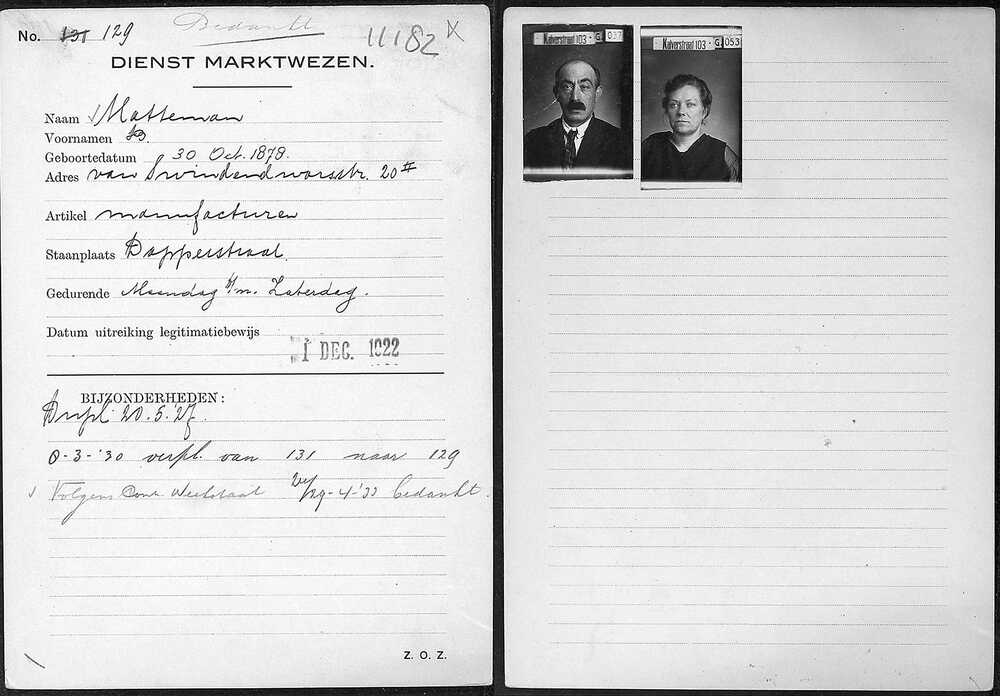 Bedankt
No. 131 129
11182 X
DIENST MARKTWEZEN.
Naam Matteman
Voornamen B.
Geboortedatum 30 Oct. 1878.
Adres van Swindendwarsstr. 20 II
Artikel manufacturen
Staanplaats Dapperstraat.
Gedurende Maandag t/m. Zaterdag.
Datum uitreiking legitimatiebewijs
1 DEC. 1922
BIJZONDERHEDEN:
Dupl. 20.5.'27.
0-3-'30 verpl. van 131 naar 129
Volgens Contr. Weekstaat 29-4-'33 bedankt.
Z. O. Z.
Kalverstraat 103 - G. 037
Kalverstraat 103 - G. 053